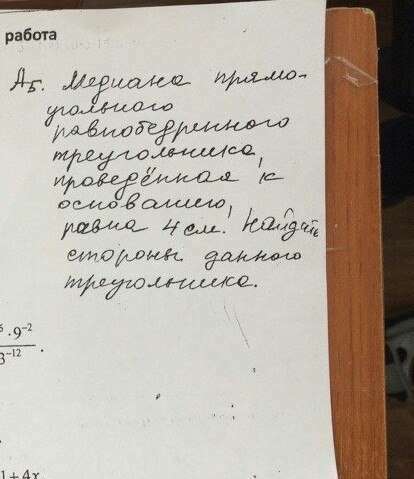 работа
А5. Медиана прямо-
угольного
равнобедренного
треугольника,
проведённая к
основанию,
равна 4 см. Найдите
стороны данного
треугольника.
· 9⁻²
3⁻¹² .
1 + 4x